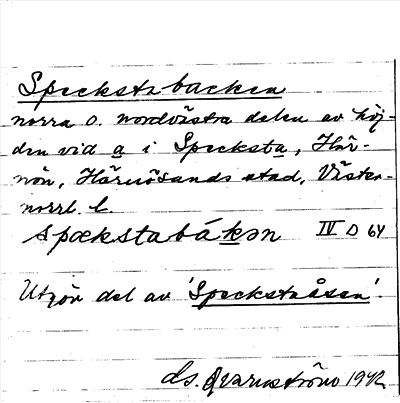 Speckstabacken
norra o. nordvästra delen av höj-
den vid a i Specksta, Här-
nön, Härnösands stad, Väster-
norrl. l.
spækstabákən IV D 64
Utgör del av 'Speckstaåsen'.
ds. Qvarnström 1942